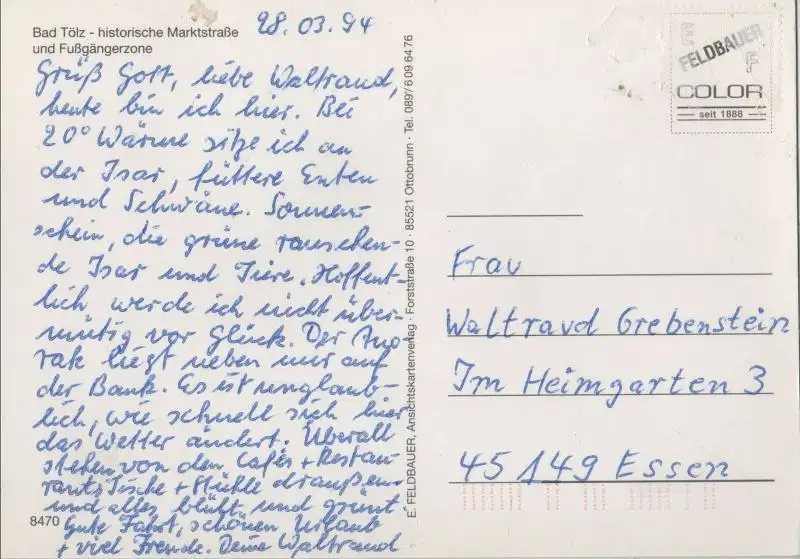 Bad Tölz - historische Marktstraße
und Fußgängerzone
28.03.94
Grüß Gott, liebe Waltraud,
heute bin ich hier. Bei
20° Wärme sitze ich an
der Isar, füttere Enten
und Schwäne. Sonnen-
schein, die grüne rauschen-
de Isar und Tiere. Hoffent-
lich werde ich nicht über-
mütig vor Glück. Der Ano-
rak liegt neben mir auf
der Bank. Es ist unglaub-
lich, wie schnell sich hier
das Wetter ändert. Überall
stehen von den Cafés + Restau-
rants Tische + Stühle draußen
und alles blüht und grünt
Gute Fahrt, schönen Urlaub
+ viel Freude. Deine Waltraud
8470
E. FELDBAUER, Ansichtskartenverlag · Forststraße 10 · 85521 Ottobrunn · Tel. 089/6 09 64 76
E F
FELDBAUER
COLOR
seit 1888
Frau
Waltraud Grebenstein
Im Heimgarten 3
45149 Essen